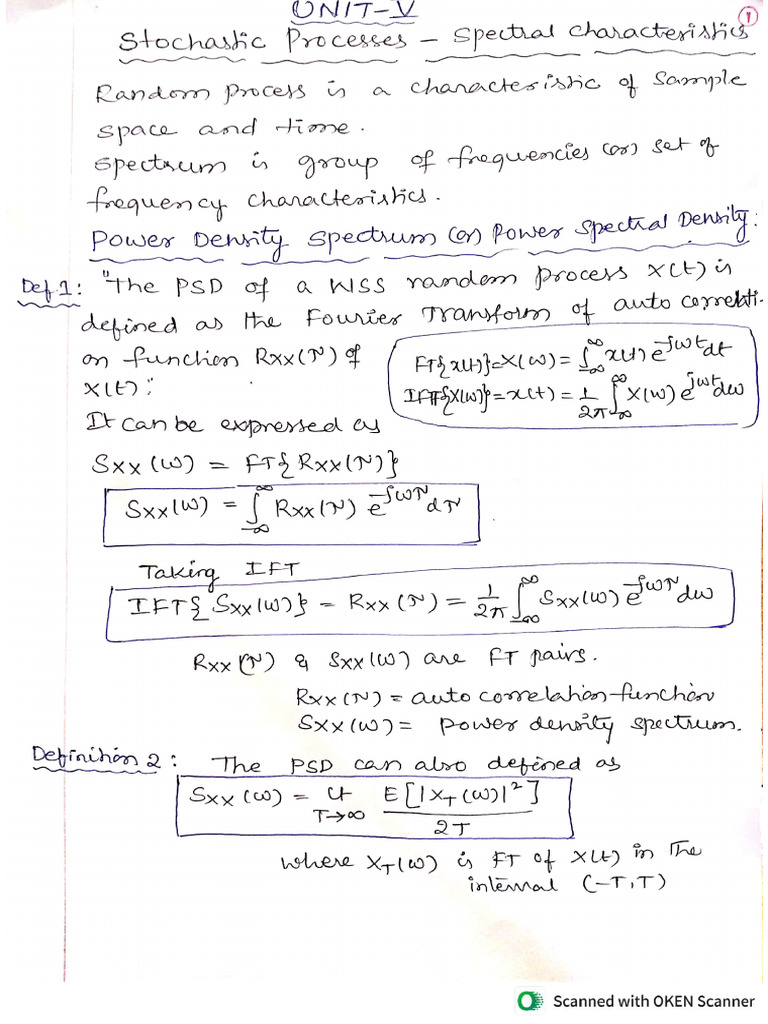 UNIT-V
1
Stochastic Processes - Spectral Characteristics
Random process is a characteristic of Sample
space and time.
Spectrum is group of frequencies (or) set of
frequency characteristics.
Power Density Spectrum (or) Power Spectral Density:
Def 1: "The PSD of a WSS random process X(t) is
defined as the Fourier Transform of auto correlati-
on function Rxx(τ) of
X(t)."
FT{x(t)} = X(ω) = ∫_{-∞}^{∞} x(t) e^{-jωt} dt
IFT{X(ω)} = x(t) = 1/2π ∫_{-∞}^{∞} X(ω) e^{jωt} dω
It can be expressed as
Sxx(ω) = FT{Rxx(τ)}
Sxx(ω) = ∫_{-∞}^{∞} Rxx(τ) e^{-jωτ} dτ
Taking IFT
IFT{Sxx(ω)} = Rxx(τ) = 1/2π ∫_{-∞}^{∞} Sxx(ω) e^{-jωτ} dω
Rxx(τ) & Sxx(ω) are FT pairs.
Rxx(τ) = auto correlation function
Sxx(ω) = power density spectrum.
Definition 2: The PSD can also defined as
Sxx(ω) = Lt_{T→∞} E[|X_T(ω)|²] / 2T
where X_T(ω) is FT of X(t) in the
internal (-T,T)
Scanned with OKEN Scanner